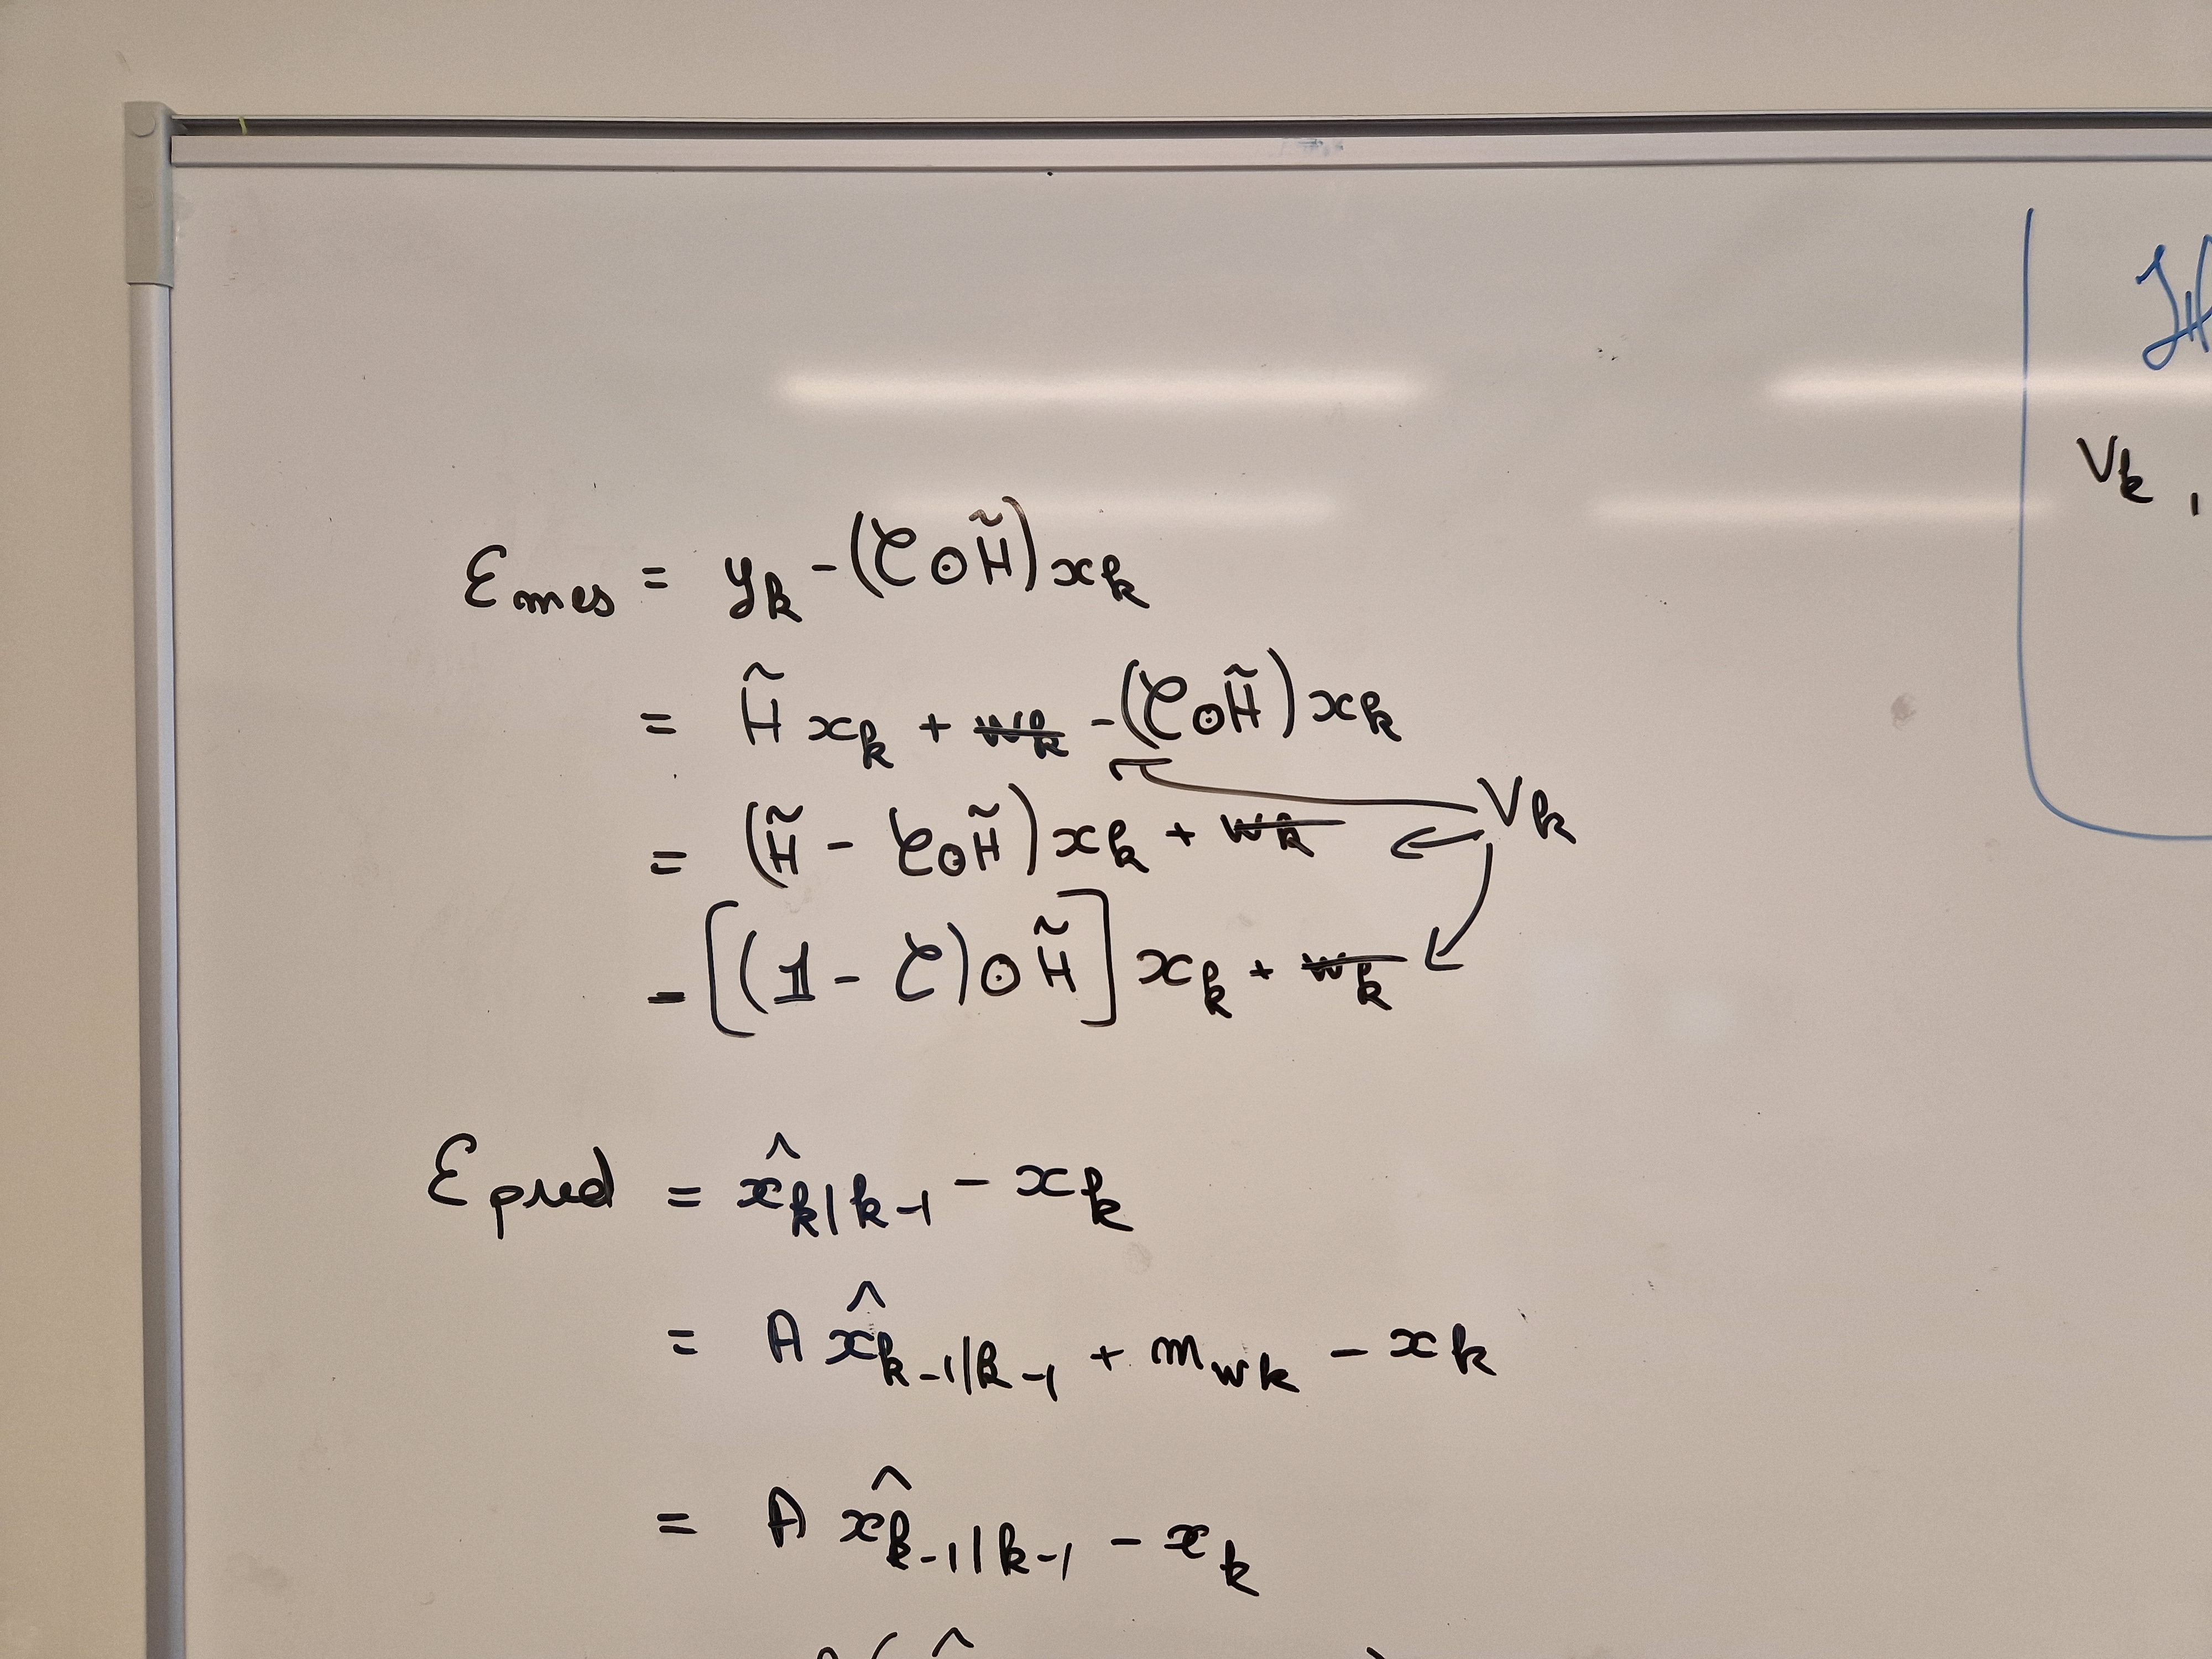 ε_mes = y_k - (τ ⊙ H̃) x_k
= H̃ x_k + ~~w_k~~ - (τ ⊙ H̃) x_k
V_k
= (H̃ - τ ⊙ H̃) x_k + ~~w_k~~
= [(𝟙 - τ) ⊙ H̃] x_k + ~~w_k~~
ε_pred = x̂_k|k-1 - x_k
= A x̂_k-1|k-1 + m_wk - x_k
= A x̂_k-1|k-1 - x_k
V_k ,